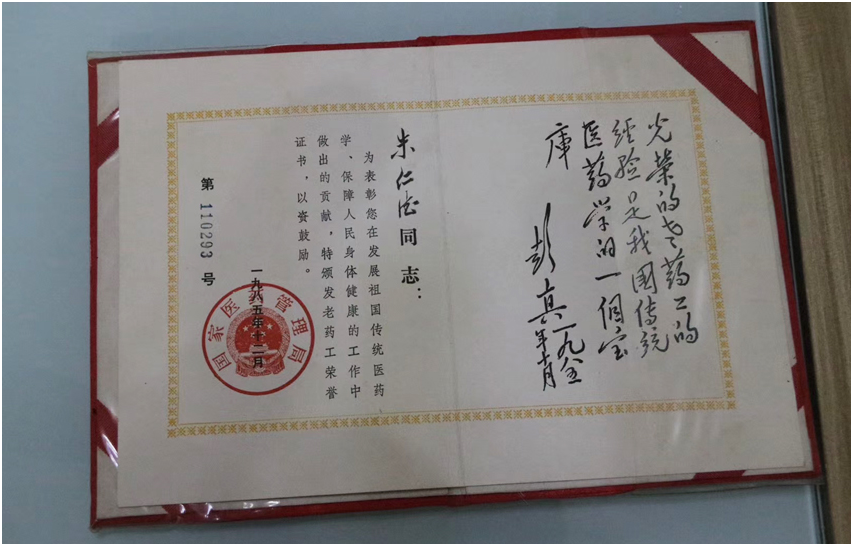 光榮的老药工的
經验是我國傳統
医药学的一個宝
庫
彭真 一九八五
朱仁德同志：
为表彰您在发展祖国传统医药
学、保障人民身体健康的工作中
做出的贡献，特颁发老药工荣誉
证书，以资鼓励。
一九八五年十二月
国家医药管理局
第 110293 号